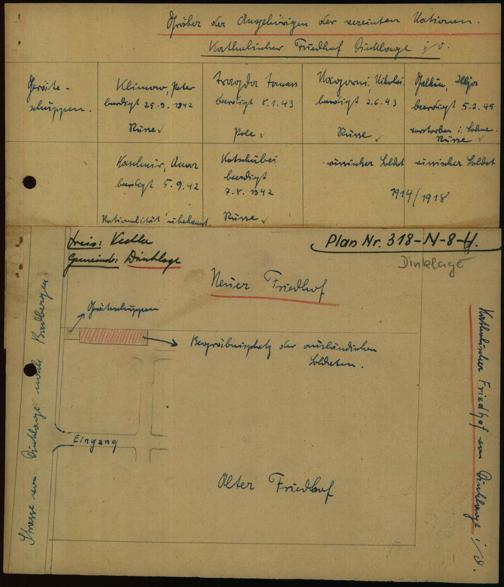 Gräber der Angehörigen der vereinten Nationen.
Katholischer Friedhof Dinklage i/O.
Geräte-
schuppen.
Klimow, Peter
beerdigt 25.9.1942
Russe
beerdigt 8.1.43
Pole
Nagorni, Nikolai
beerdigt 2.6.43
Russe
beerdigt 5.2.45
Russe
beerdigt 5.9.42
Nationalität unbekannt
Kotschubei
beerdigt
7.8.1942
Russe
russischer Soldat
russischer Soldat
1914/1918
Kreis: Vechta
Gemeinde: Dinklage
Plan Nr. 318-N-8-H.
Dinklage
Neuer Friedhof
Geräteschuppen
Begräbnisplatz der ausländischen
Soldaten.
Eingang
Alter Friedhof
Strasse von Dinklage nach Badbergen
Katholischer Friedhof von Dinklage i/O.